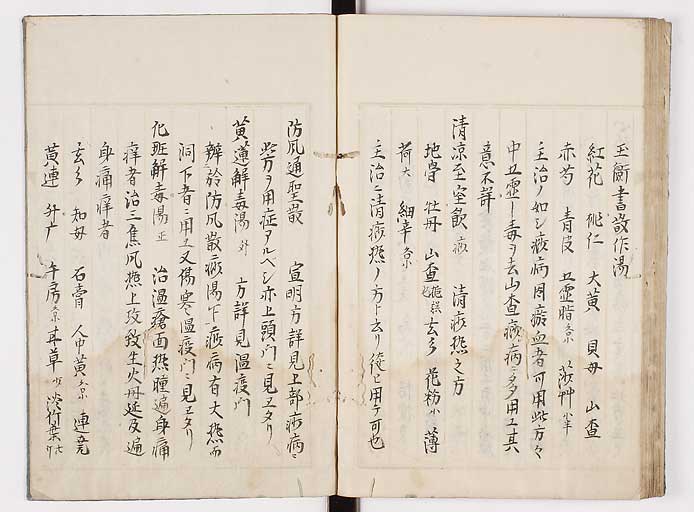 玉衡書散作湯
紅花 桃仁 大黄 貝母 山査
赤芍 青皮 五霊脂
主治ノ如シ痧病因瘀血者可用此方
中五霊ハ毒ヲ去山査痧病ニ多用ユ其
意不詳
清凉至宝飲 清痧熱之方
地骨 牡丹 山査 玄参 花粉 薄
荷 細辛
主治ニ清痧熱ノ方ト云リ後ヒ用テ可也
防風通聖散 宣明方詳見上部痧病ニ
此方ヲ用症アルベシ亦上頭門ニ見エタリ
黄蓮解毒湯 外 方詳見温疫門
辨於防風散痧湯下痧病有大熱而
洞下者ニ用ユ又傷寒温疫門ニ見エタリ
化斑解毒湯 正 治温瘡面熱腫遍身痛
痒者治三焦風熱上攻致生火丹延及遍
身痛痒者
玄参 知母 石膏 人中黄 連翹
黄連 升广 牛房 甘草 淡竹葉